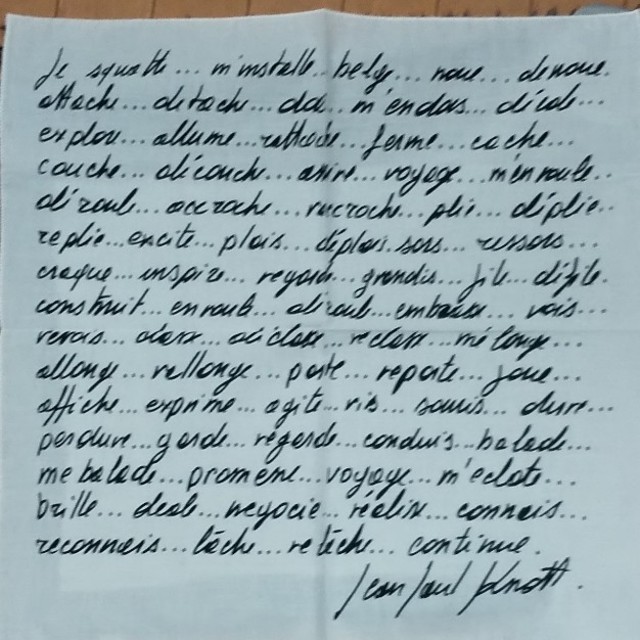 Je squatte... m'installe... belge... noue... denoue.
attache... detache... dds... m'endors... décole...
explore... allume... rattache... ferme... cache...
couche... découche... attire... voyage... m'enroule..
déroule... accroche... raccroche... plie... déplie..
replie... excite... plais... déplais. sors... ressors...
craque... inspire... regarde... grandis... file... défile.
construit... enroule... déroule... embrasse... vois...
revois... classe... déclasse... reclasse... mélange...
allonge... rallonge... porte... reporte... joue...
affiche... exprime... agite.. ris... souris... dure...
perdure... garde... régarde... conduis... balade...
me balade... promène... voyage... m'eclate...
brille... deale... negocie... réalise... connais...
reconnais... lâche... relâche... continue.
Jean Paul Knott.